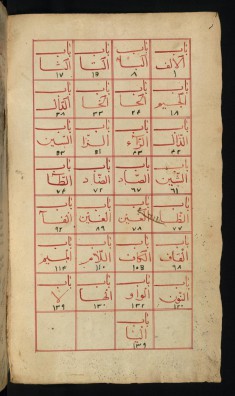 باب باب باب باب
الالف البا التا الثا
١ ٨ ١٥ ١٧
باب باب باب باب
الجيم الحا الخا الدال
١٨ ٢٤ ٣٣ ٣٨
باب باب باب باب
الذال الراء الزا السين
٤٢ ٤٣ ٥١
باب باب باب باب
الشين الصاد الضاد الطا
٦١ ٦٧ ٧٢ ٧٤
باب باب باب باب
الظا العين الغين الفا
٧٧ ٧٨ ٨٩ ٩٢
باب باب باب باب
القاف الكاف اللام الميم
٩٨ ١٠٥ ١١٠ ١١٤
باب باب باب باب
النون الواو الها لا
١٣٢ ١٣٠ ١٣٩
باب
اليا
١٣٩